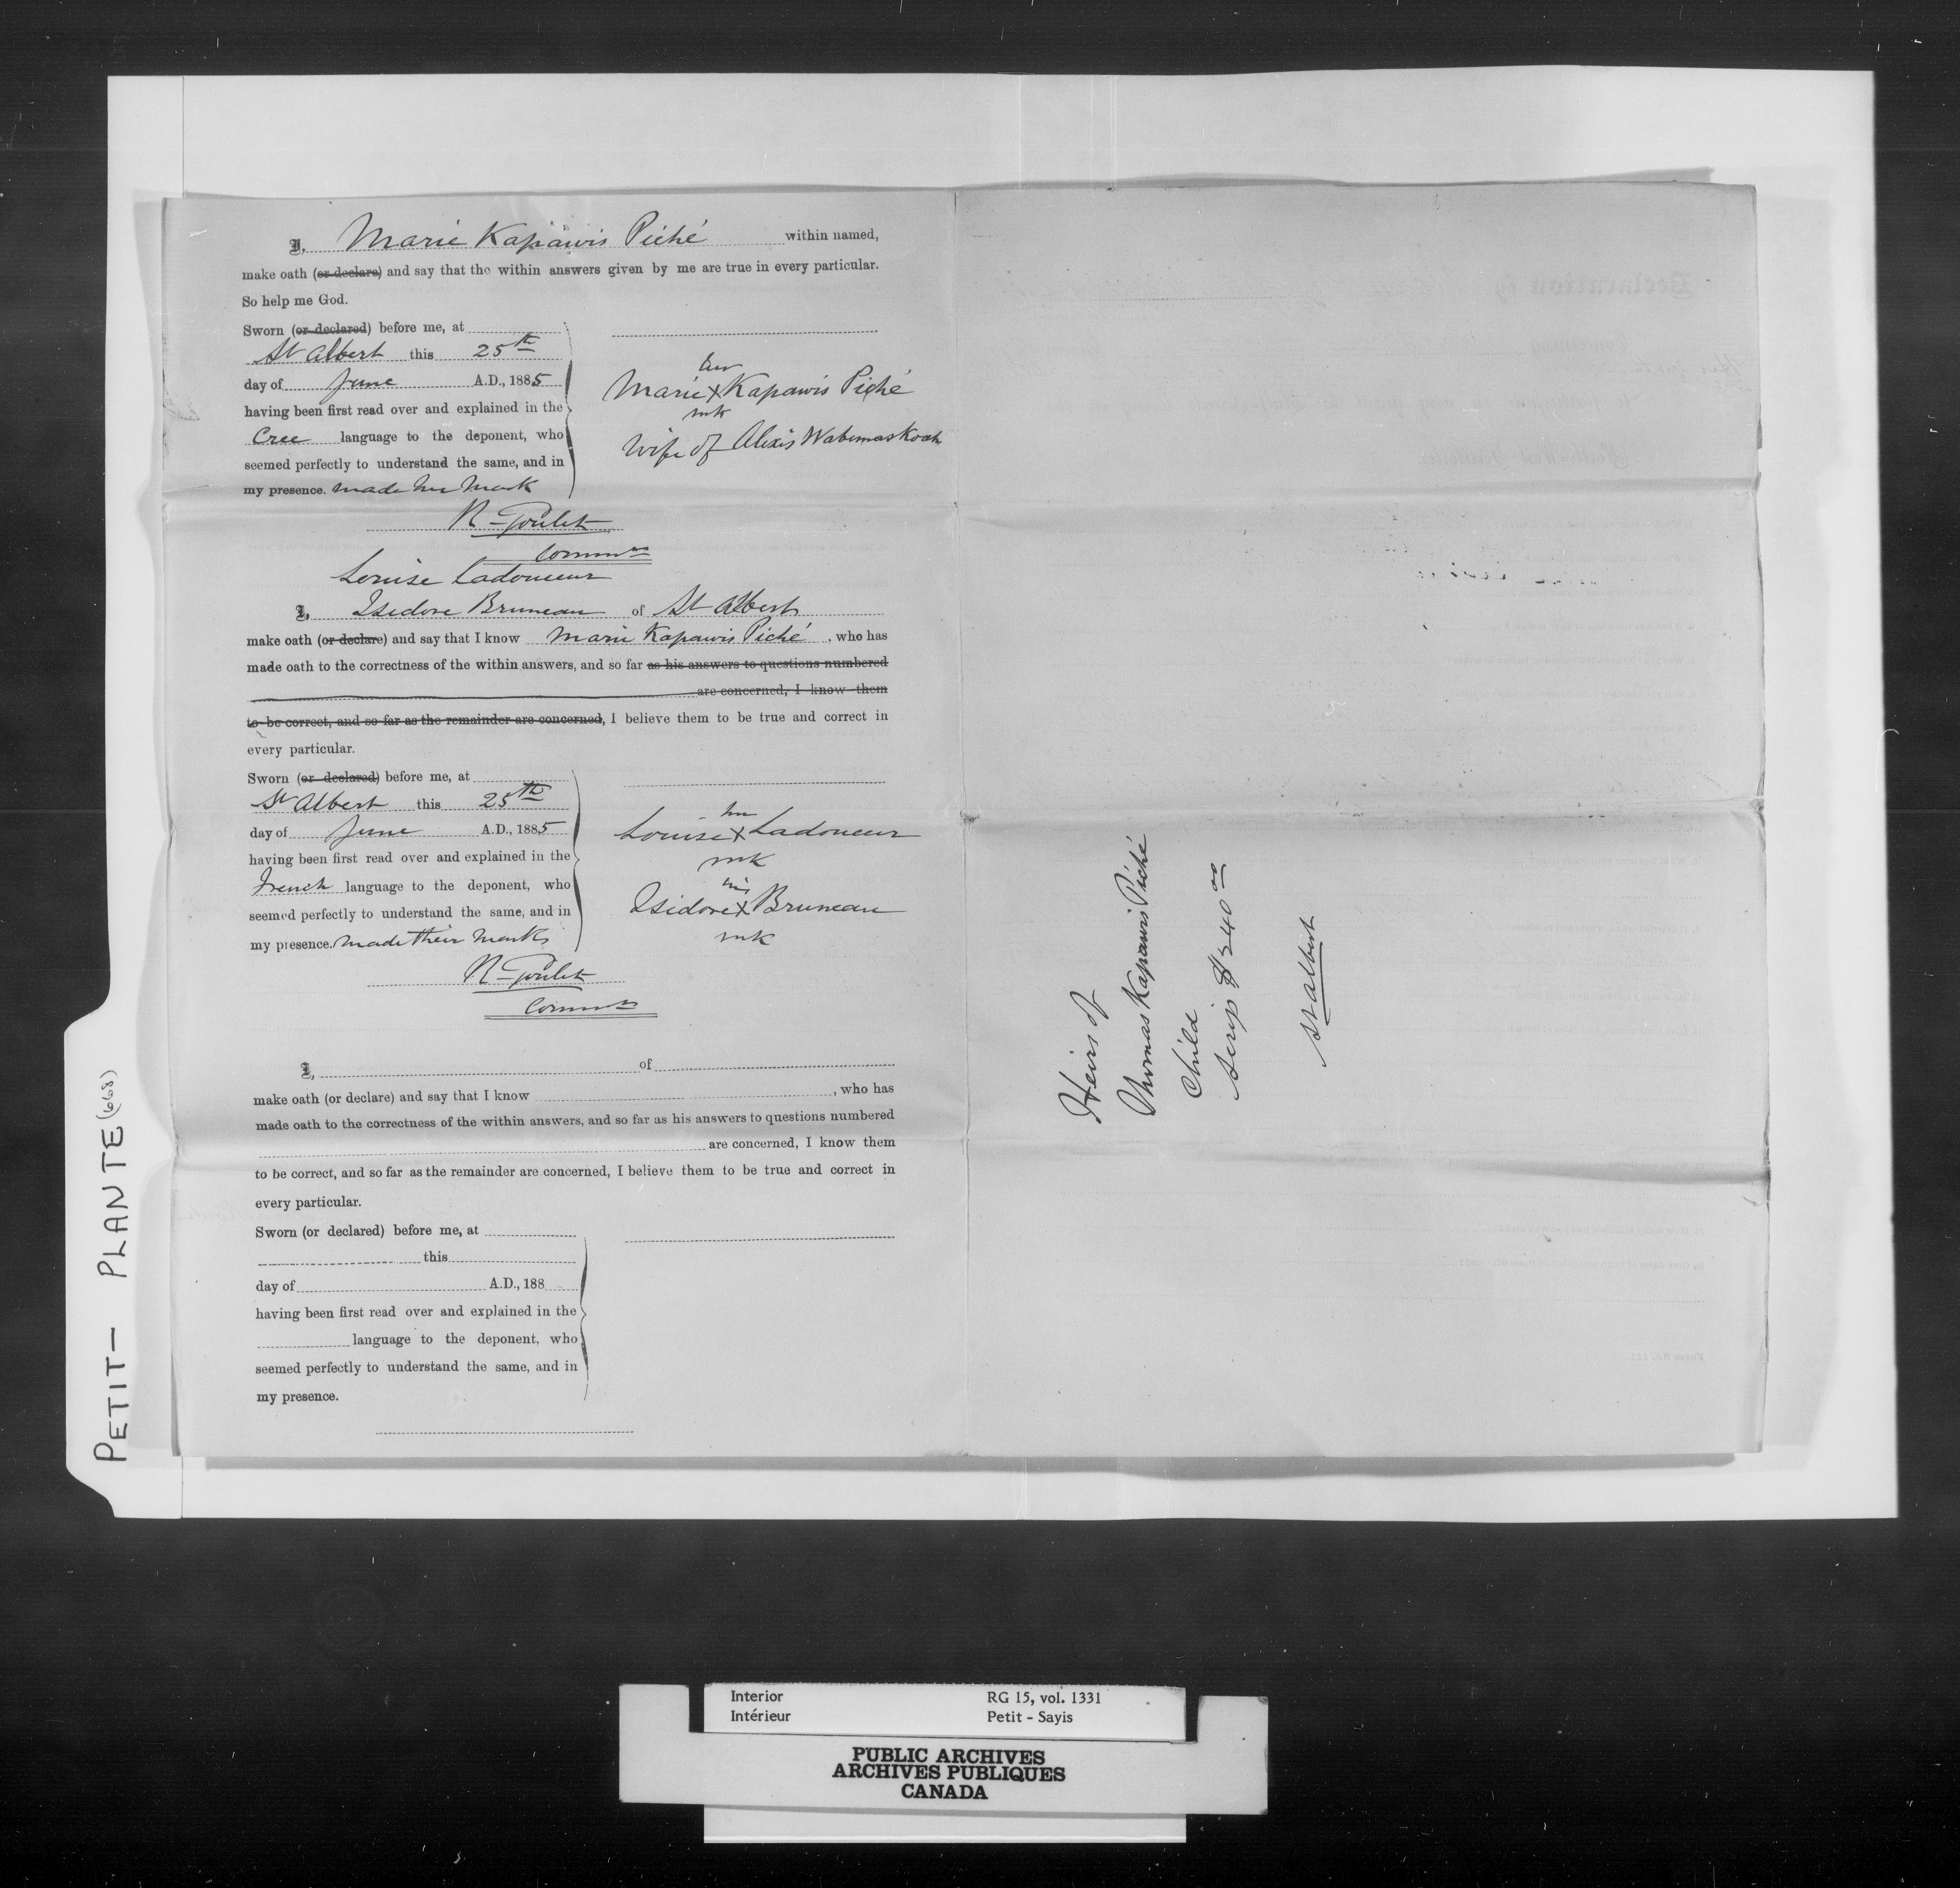 I, Marie Kapawis Piché within named,
make oath (or declare) and say that the within answers given by me are true in every particular.
So help me God.
Sworn (or declared) before me, at
St Albert this 25th
day of June A.D., 1885
having been first read over and explained in the
Cree language to the deponent, who
seemed perfectly to understand the same, and in
my presence. made her mark
her
Marie X Kapawis Piché
mk
Wife of Alexis Wabemaskoah
R Goulet
Commr
Louise Ladouceur
I, Isidore Bruneau of St Albert
make oath (or declare) and say that I know Marie Kapawis Piché, who has
made oath to the correctness of the within answers, and so far as his answers to questions numbered
are concerned, I know them
to be correct, and so far as the remainder are concerned, I believe them to be true and correct in
every particular.
Sworn (or declared) before me, at
St Albert this 25th
day of June A.D., 1885
having been first read over and explained in the
French language to the deponent, who
seemed perfectly to understand the same, and in
my presence. made their marks
her
Louise X Ladouceur
mk
his
Isidore X Bruneau
mk
R Goulet
Commr
I, of
make oath (or declare) and say that I know , who has
made oath to the correctness of the within answers, and so far as his answers to questions numbered
are concerned, I know them
to be correct, and so far as the remainder are concerned, I believe them to be true and correct in
every particular.
Sworn (or declared) before me, at
this
day of A.D., 188
having been first read over and explained in the
language to the deponent, who
seemed perfectly to understand the same, and in
my presence.
Heirs of
Thomas Kapawis Piché
Child
Scrip $240 00
St Albert
PETIT - PLANTE (668)
Interior RG 15, vol. 1331
Intérieur Petit - Sayis
PUBLIC ARCHIVES
ARCHIVES PUBLIQUES
CANADA